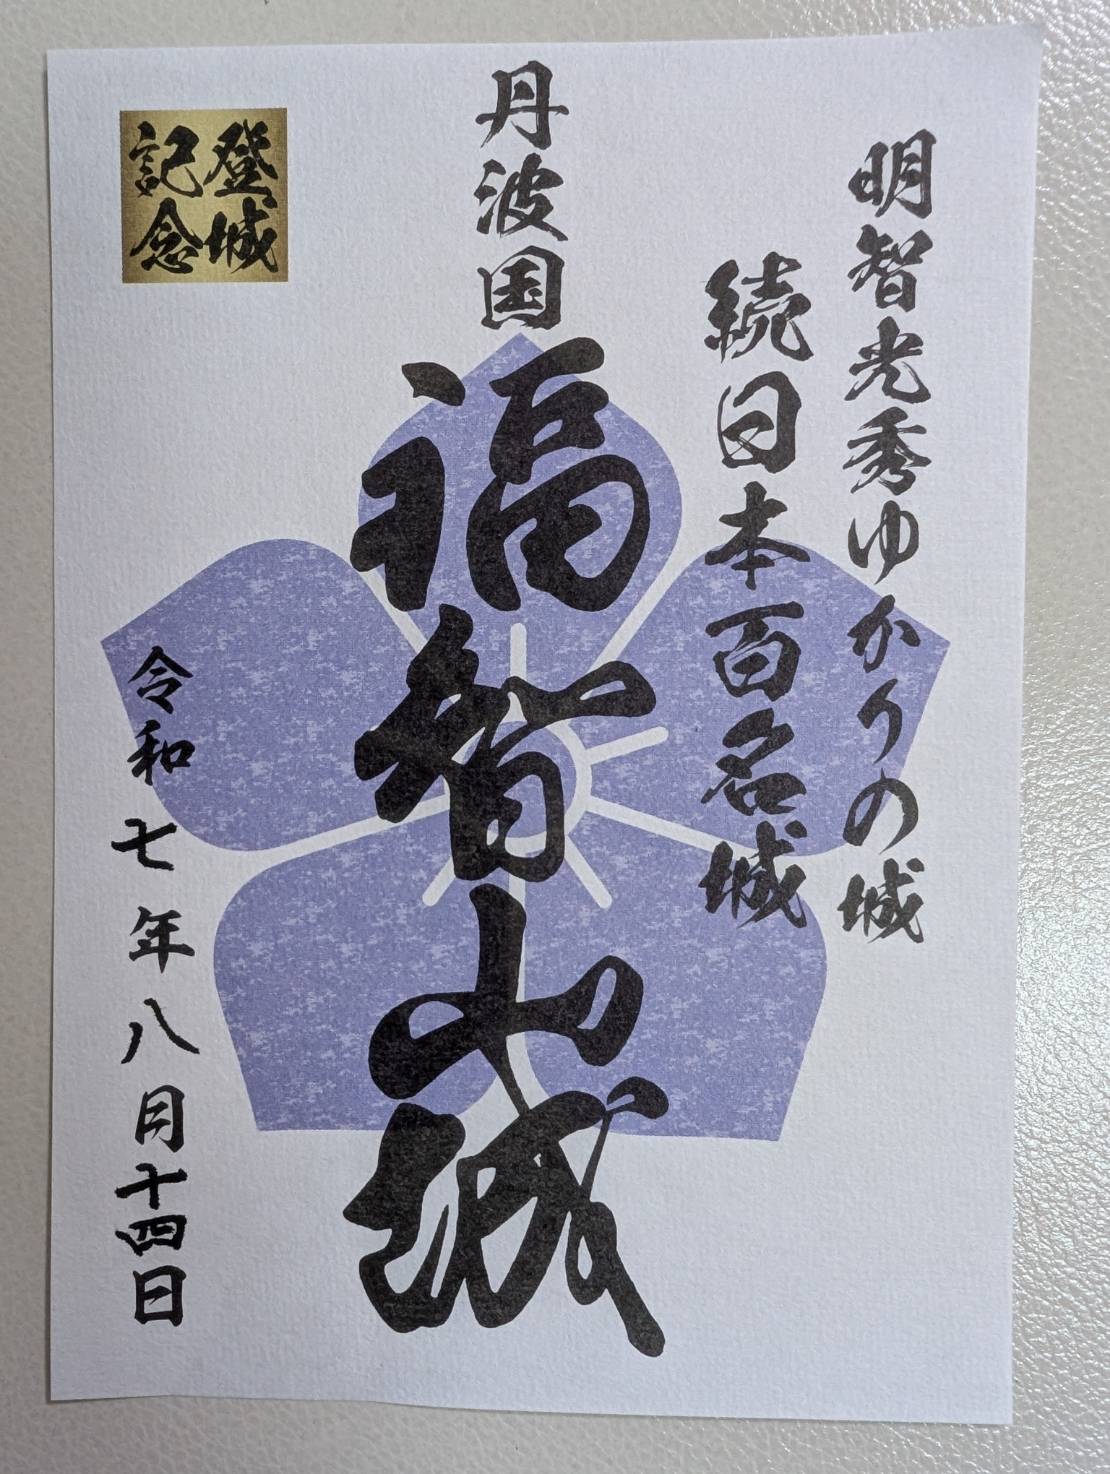 明智光秀ゆかりの城
続日本百名城
丹波国
福智山城
登城
記念
令和七年八月十四日